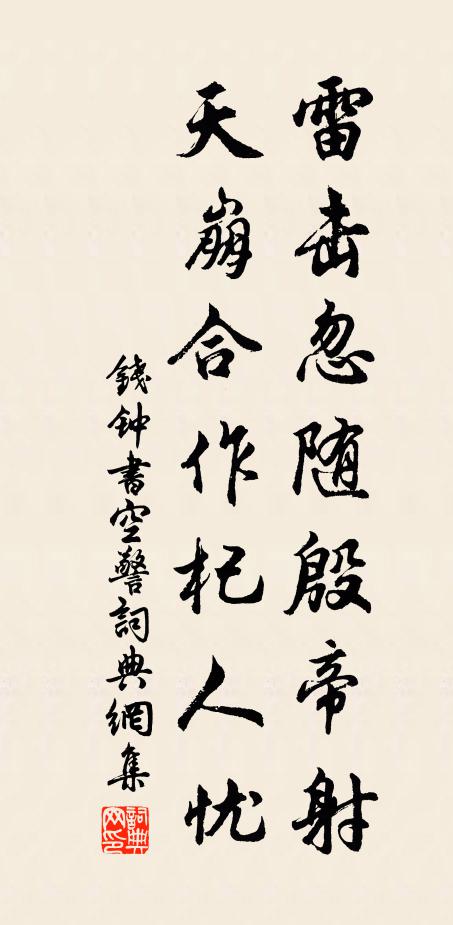 雷击忽随殷帝射
天崩合作杞人忧
錢钟書空警詞典網集
詞典
网印